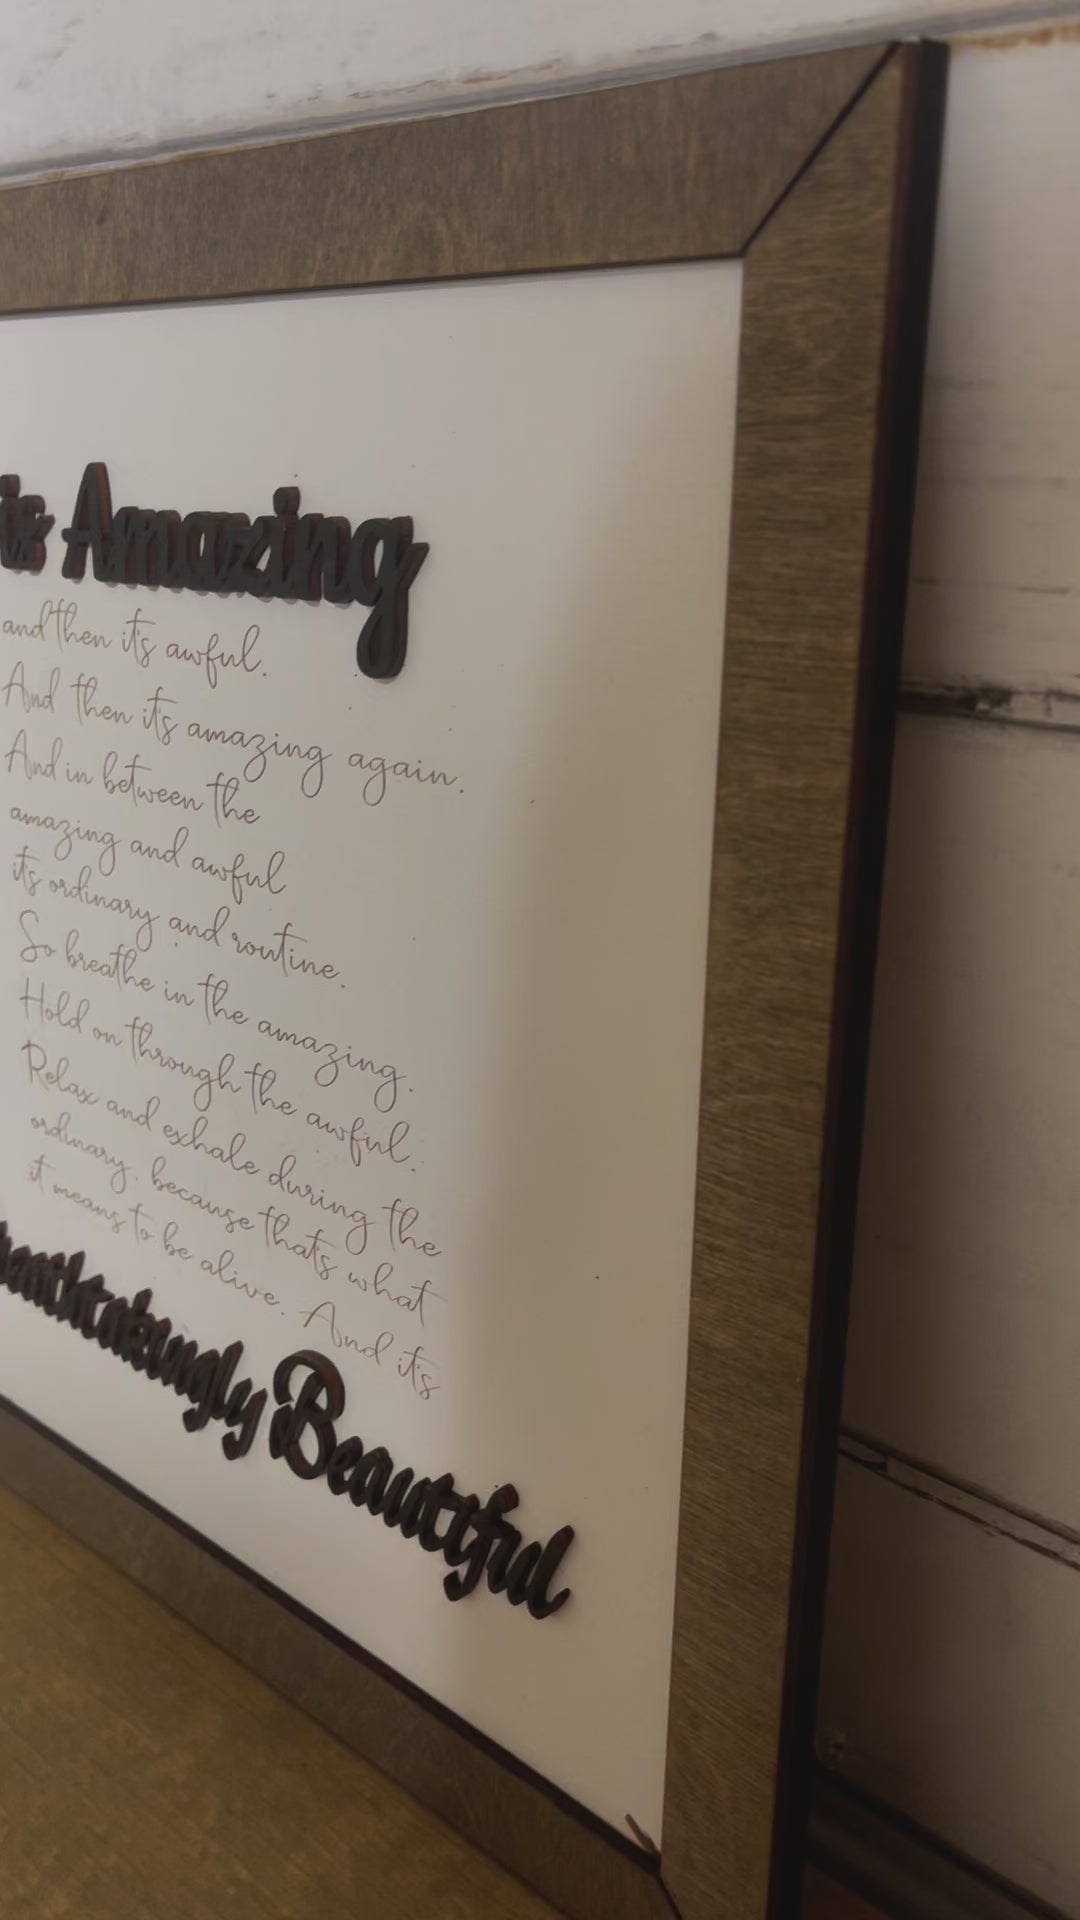 is Amazing
and then it's awful.
And then it's amazing again.
And in between the
amazing and awful
it's ordinary and routine.
So breathe in the amazing.
Hold on through the awful.
Relax and exhale during the
ordinary. because that's what
it means to be alive. And it's
eathtakingly Beautiful